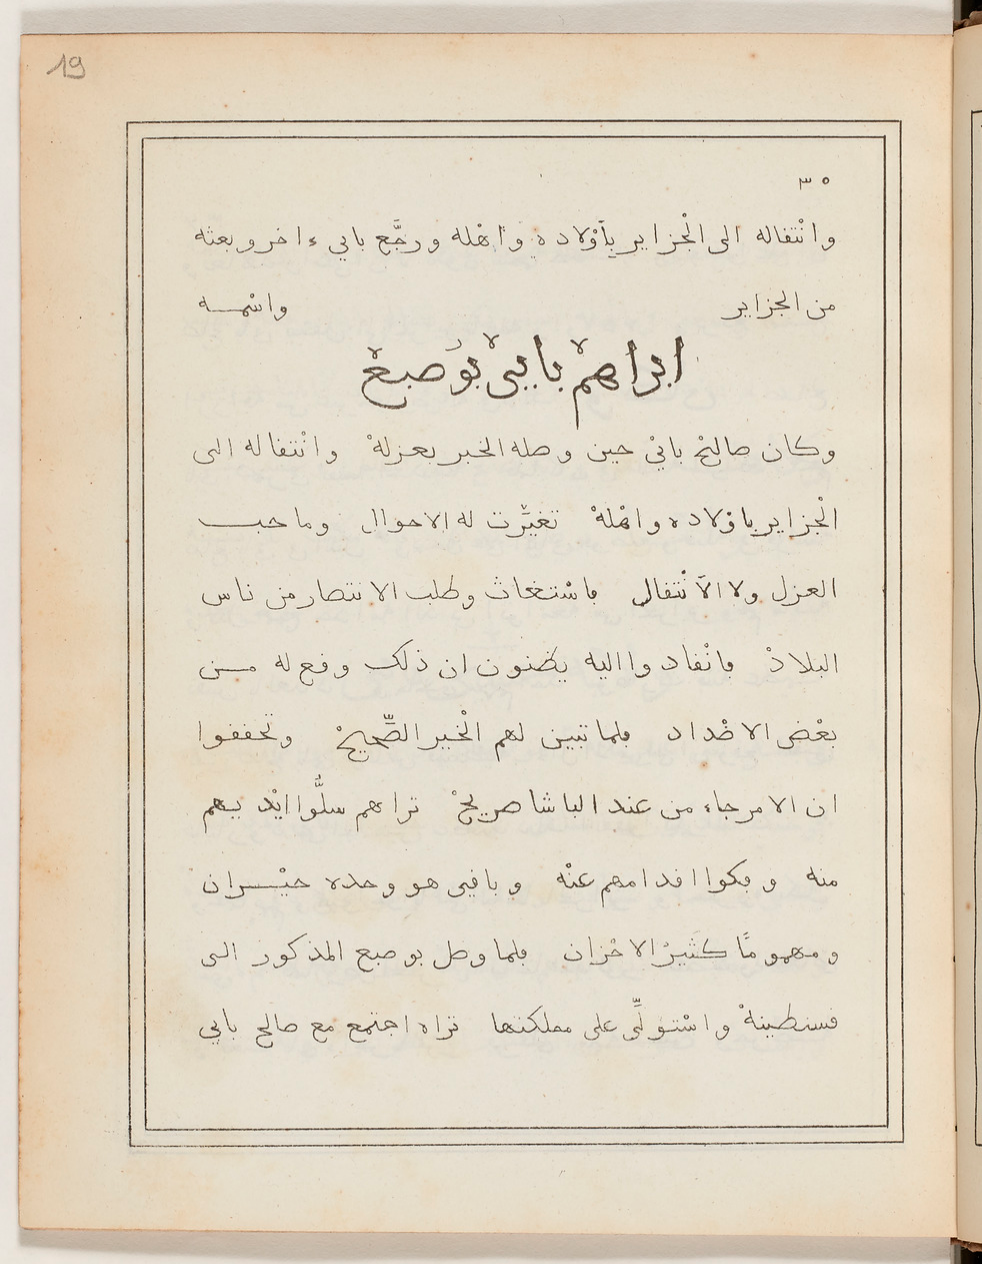 19
٣٥
وانْتقاله الى الْجزاير بأَوْلاده وأَهْله ورجَّع بايي ءاخر وبعثه
من الجزاير واسْمـــه
ابراهمْ باييْ بوصبعْ
وكان صالحْ بايْ حين وصله الخبر بعزلهْ وانْتقاله الى
الْجزاير باوْلاده واهْلهْ تغيَّرت له الاحوال وما حب
العزل ولا الاَنْتقال فاسْتغاث وطلب الانتصار من ناس
البلادْ فانْقادوا اليه يظنون ان ذلك وقع له مـــن
بعْض الاضْداد فلما تبين لهم الْخبر الصَّحيحْ وتحققوا
ان الامر جاء من عند الباشا صريحْ تراهم سلُّوا ايْديهم
منه وفكوا اقدامهم عنْه وبافي هو وحده حيْـــران
ومهمومًا كثيرْ الاحْزان فلما وصل بوصبع المذكور الى
قسنطينةْ واسْتولَّى على مملكتها تراه اجتمع مع صالح بايي